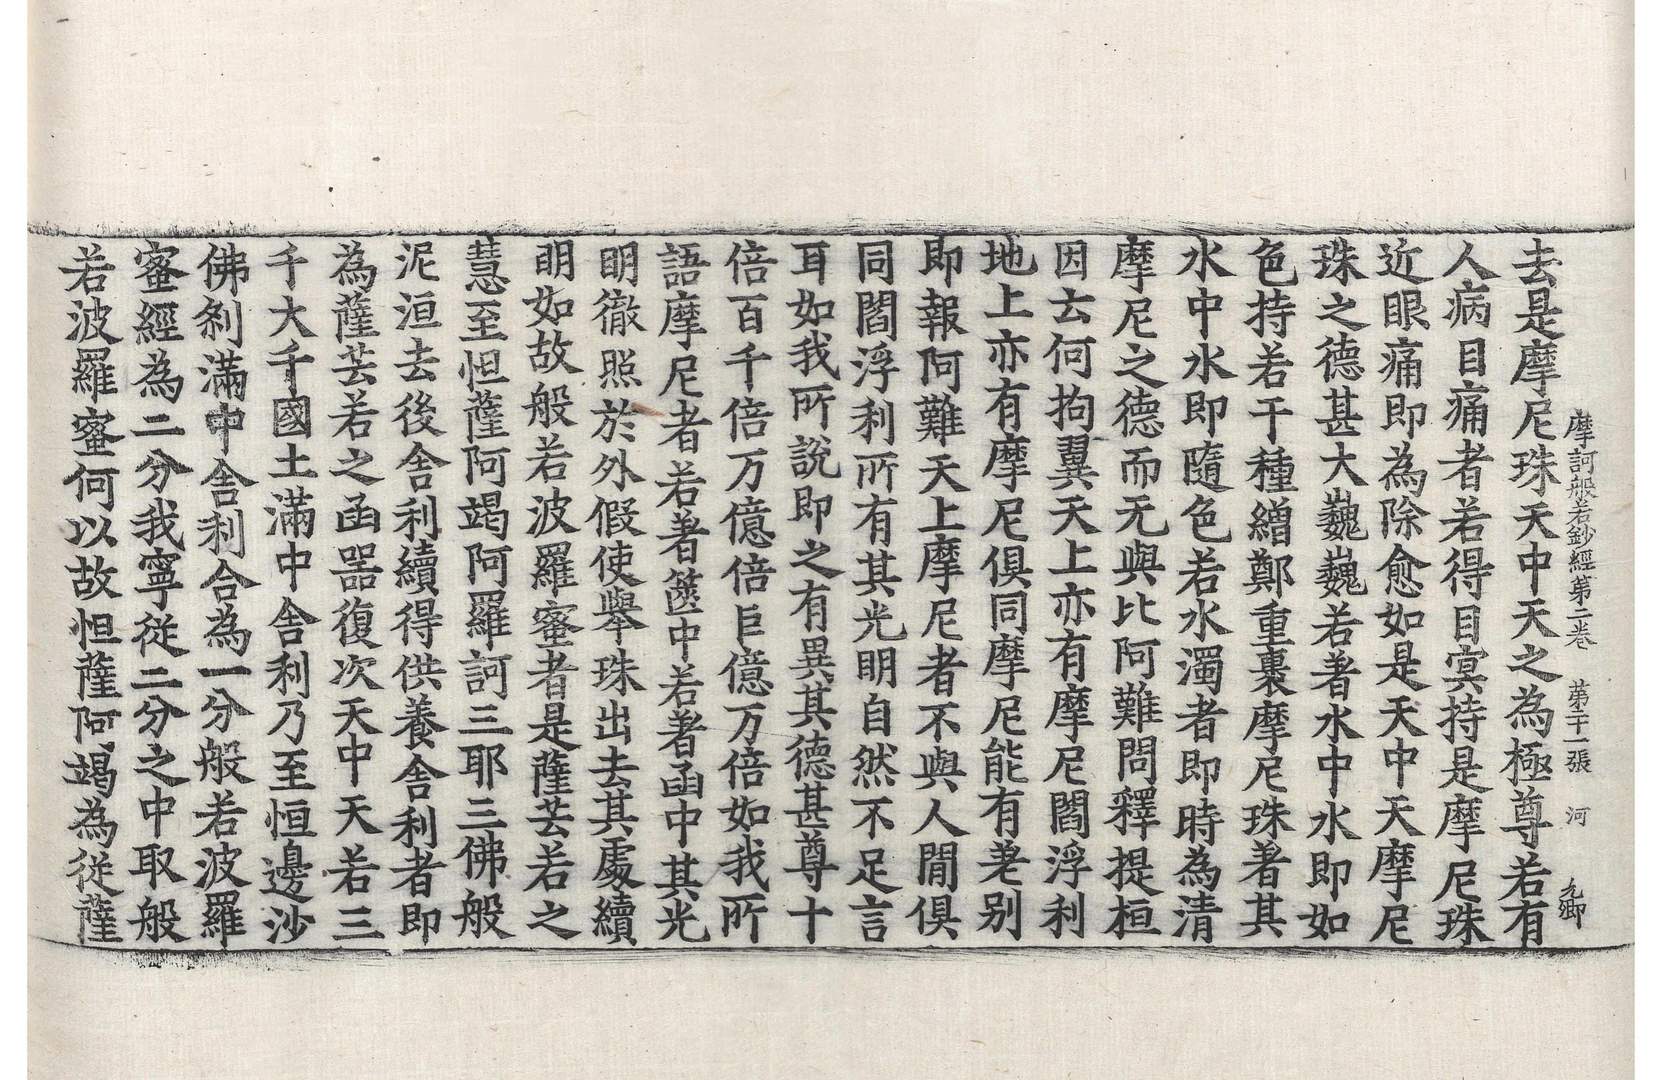 摩訶般若鈔經第二卷 第二十一張 河
去是摩尼珠天中天之為極尊若有
人病目痛者若得目冥持是摩尼珠
近眼痛即為除愈如是天中天摩尼
珠之德甚大巍巍若著水中水即如
色持若干種繒鄭重裹摩尼珠著其
水中水即隨色若水濁者即時為清
摩尼之德而无與比阿難問釋提桓
因去何拘翼天上亦有摩尼閻浮利
地上亦有摩尼俱同摩尼能有差别
即報阿難天上摩尼者不與人閒俱
同閻浮利所有其光明自然不足言
耳如我所說即之有異其德甚尊十
倍百千倍万億倍巨億万倍如我所
語摩尼者若著篋中若著函中其光
明徹照於外假使舉珠出去其處續
明如故般若波羅蜜者是薩芸若之
慧至怛薩阿竭阿羅訶三耶三佛般
泥洹去後舍利續得供養舍利者即
為薩芸若之函器復次天中天若三
千大千國土滿中舍利乃至恒邊沙
佛剎滿中舍利合為一分般若波羅
蜜經為二分我寧從二分之中取般
若波羅蜜何以故怛薩阿竭為從薩